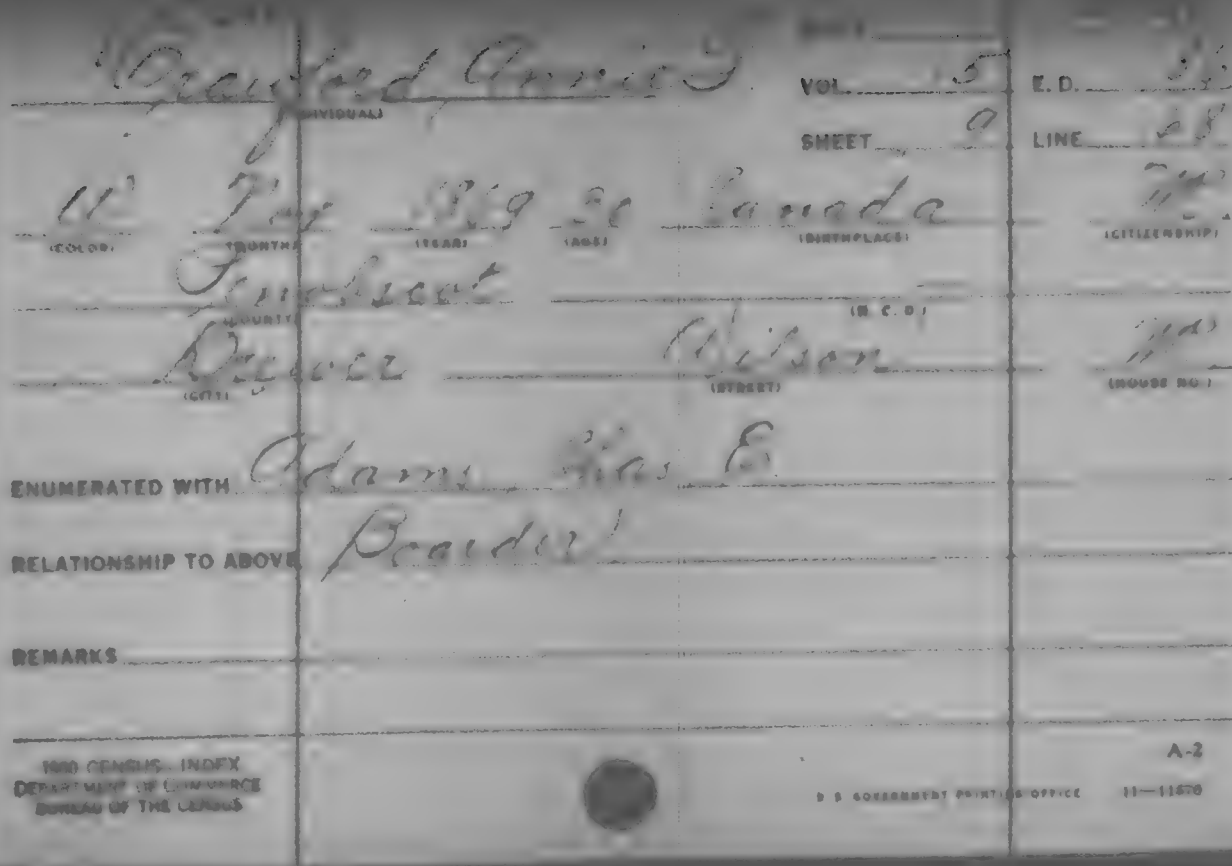 Crawford, Annie J VOL. 15 E. D.
(INDIVIDUAL)
SHEET 9 LINE 68
W Nov 1869 30 Canada
(COLOR) (MONTH) (YEAR) (AGE) (BIRTHPLACE) (CITIZENSHIP)
Penobscot
(COUNTY) (M. C. D.)
Brewer Wilson
(CITY) (STREET) (HOUSE NO.)
ENUMERATED WITH Adams E
RELATIONSHIP TO ABOVE Boarder
REMARKS
1900 CENSUS—INDEX A-2
DEPARTMENT OF COMMERCE
BUREAU OF THE CENSUS U S GOVERNMENT PRINTING OFFICE 11—11670